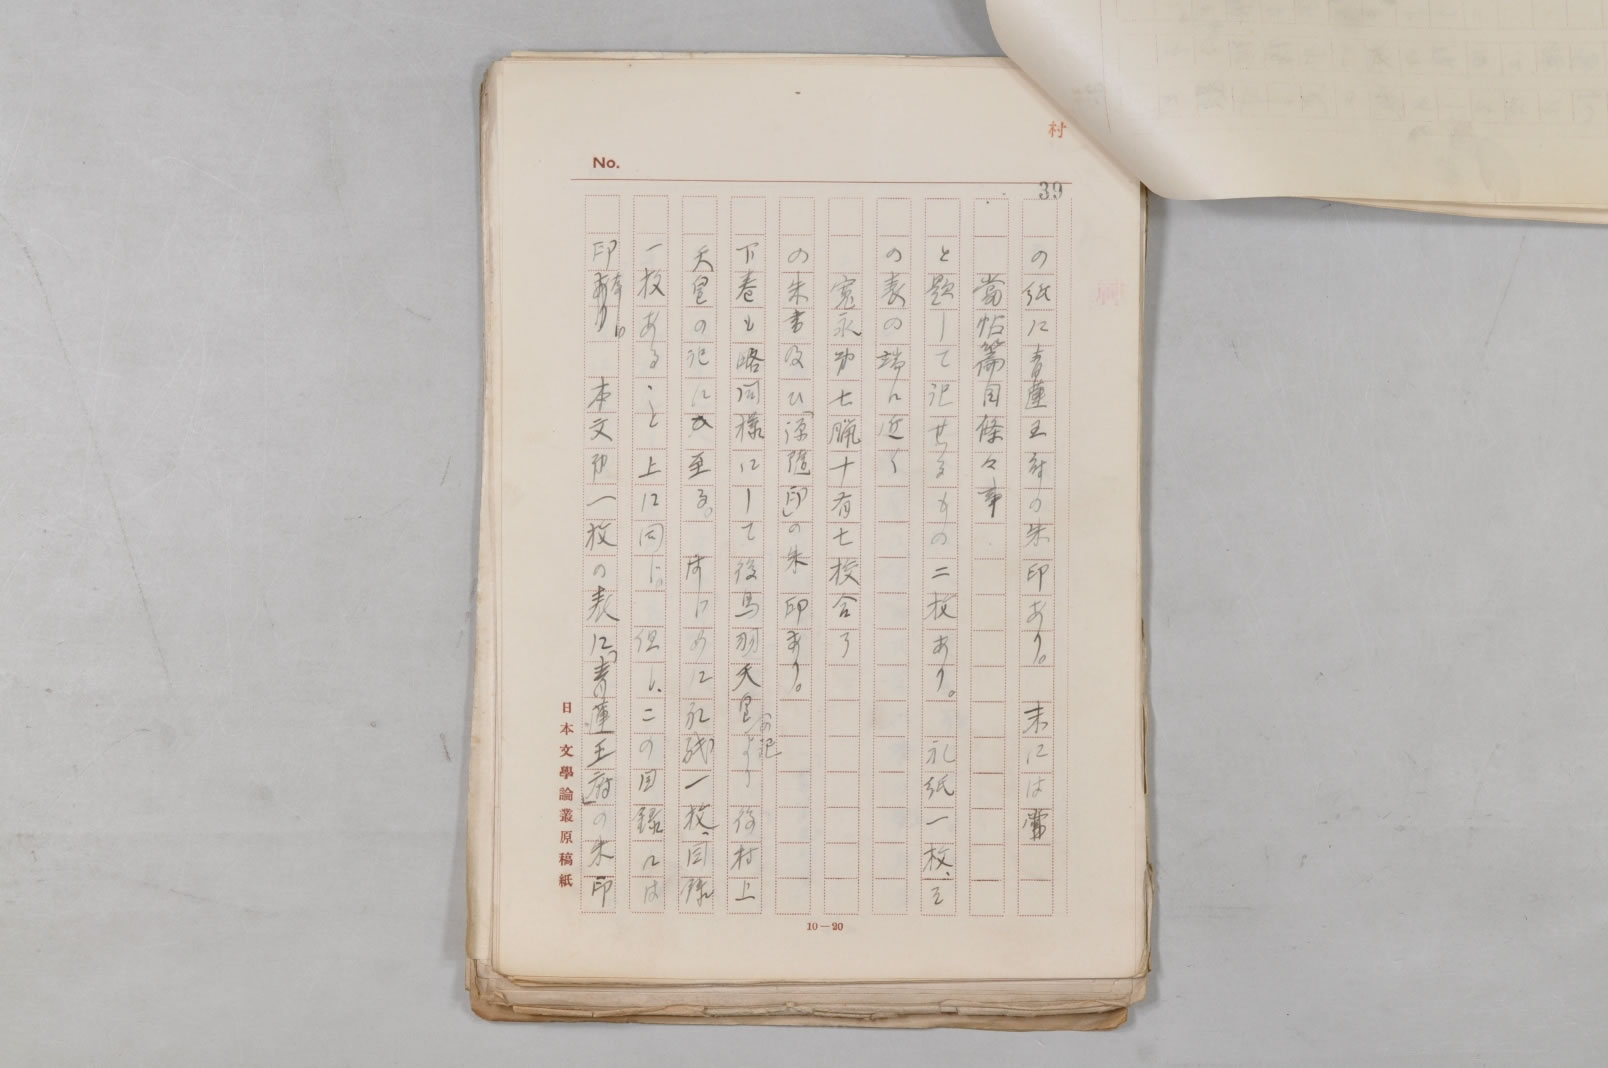 村
No.
39
の紙に青蓮王府の朱印あり。 末には
當帖篇目條々事
と題して記せるもの二枚あり。 礼紙一枚、そ
の表の端に近く
寛永 七臘十有七校合了
の朱書及ひ「 印」の朱印あり。
下巻も略同様にして後鳥羽天皇の記より後村上
天皇の記に至る。 はじめに礼紙一枚、目録
一枚あること上に同じ。 但し、この目録には
印あり。 本文 一枚の表に「青蓮王府」の朱印
日本文學論叢原稿紙
10—20